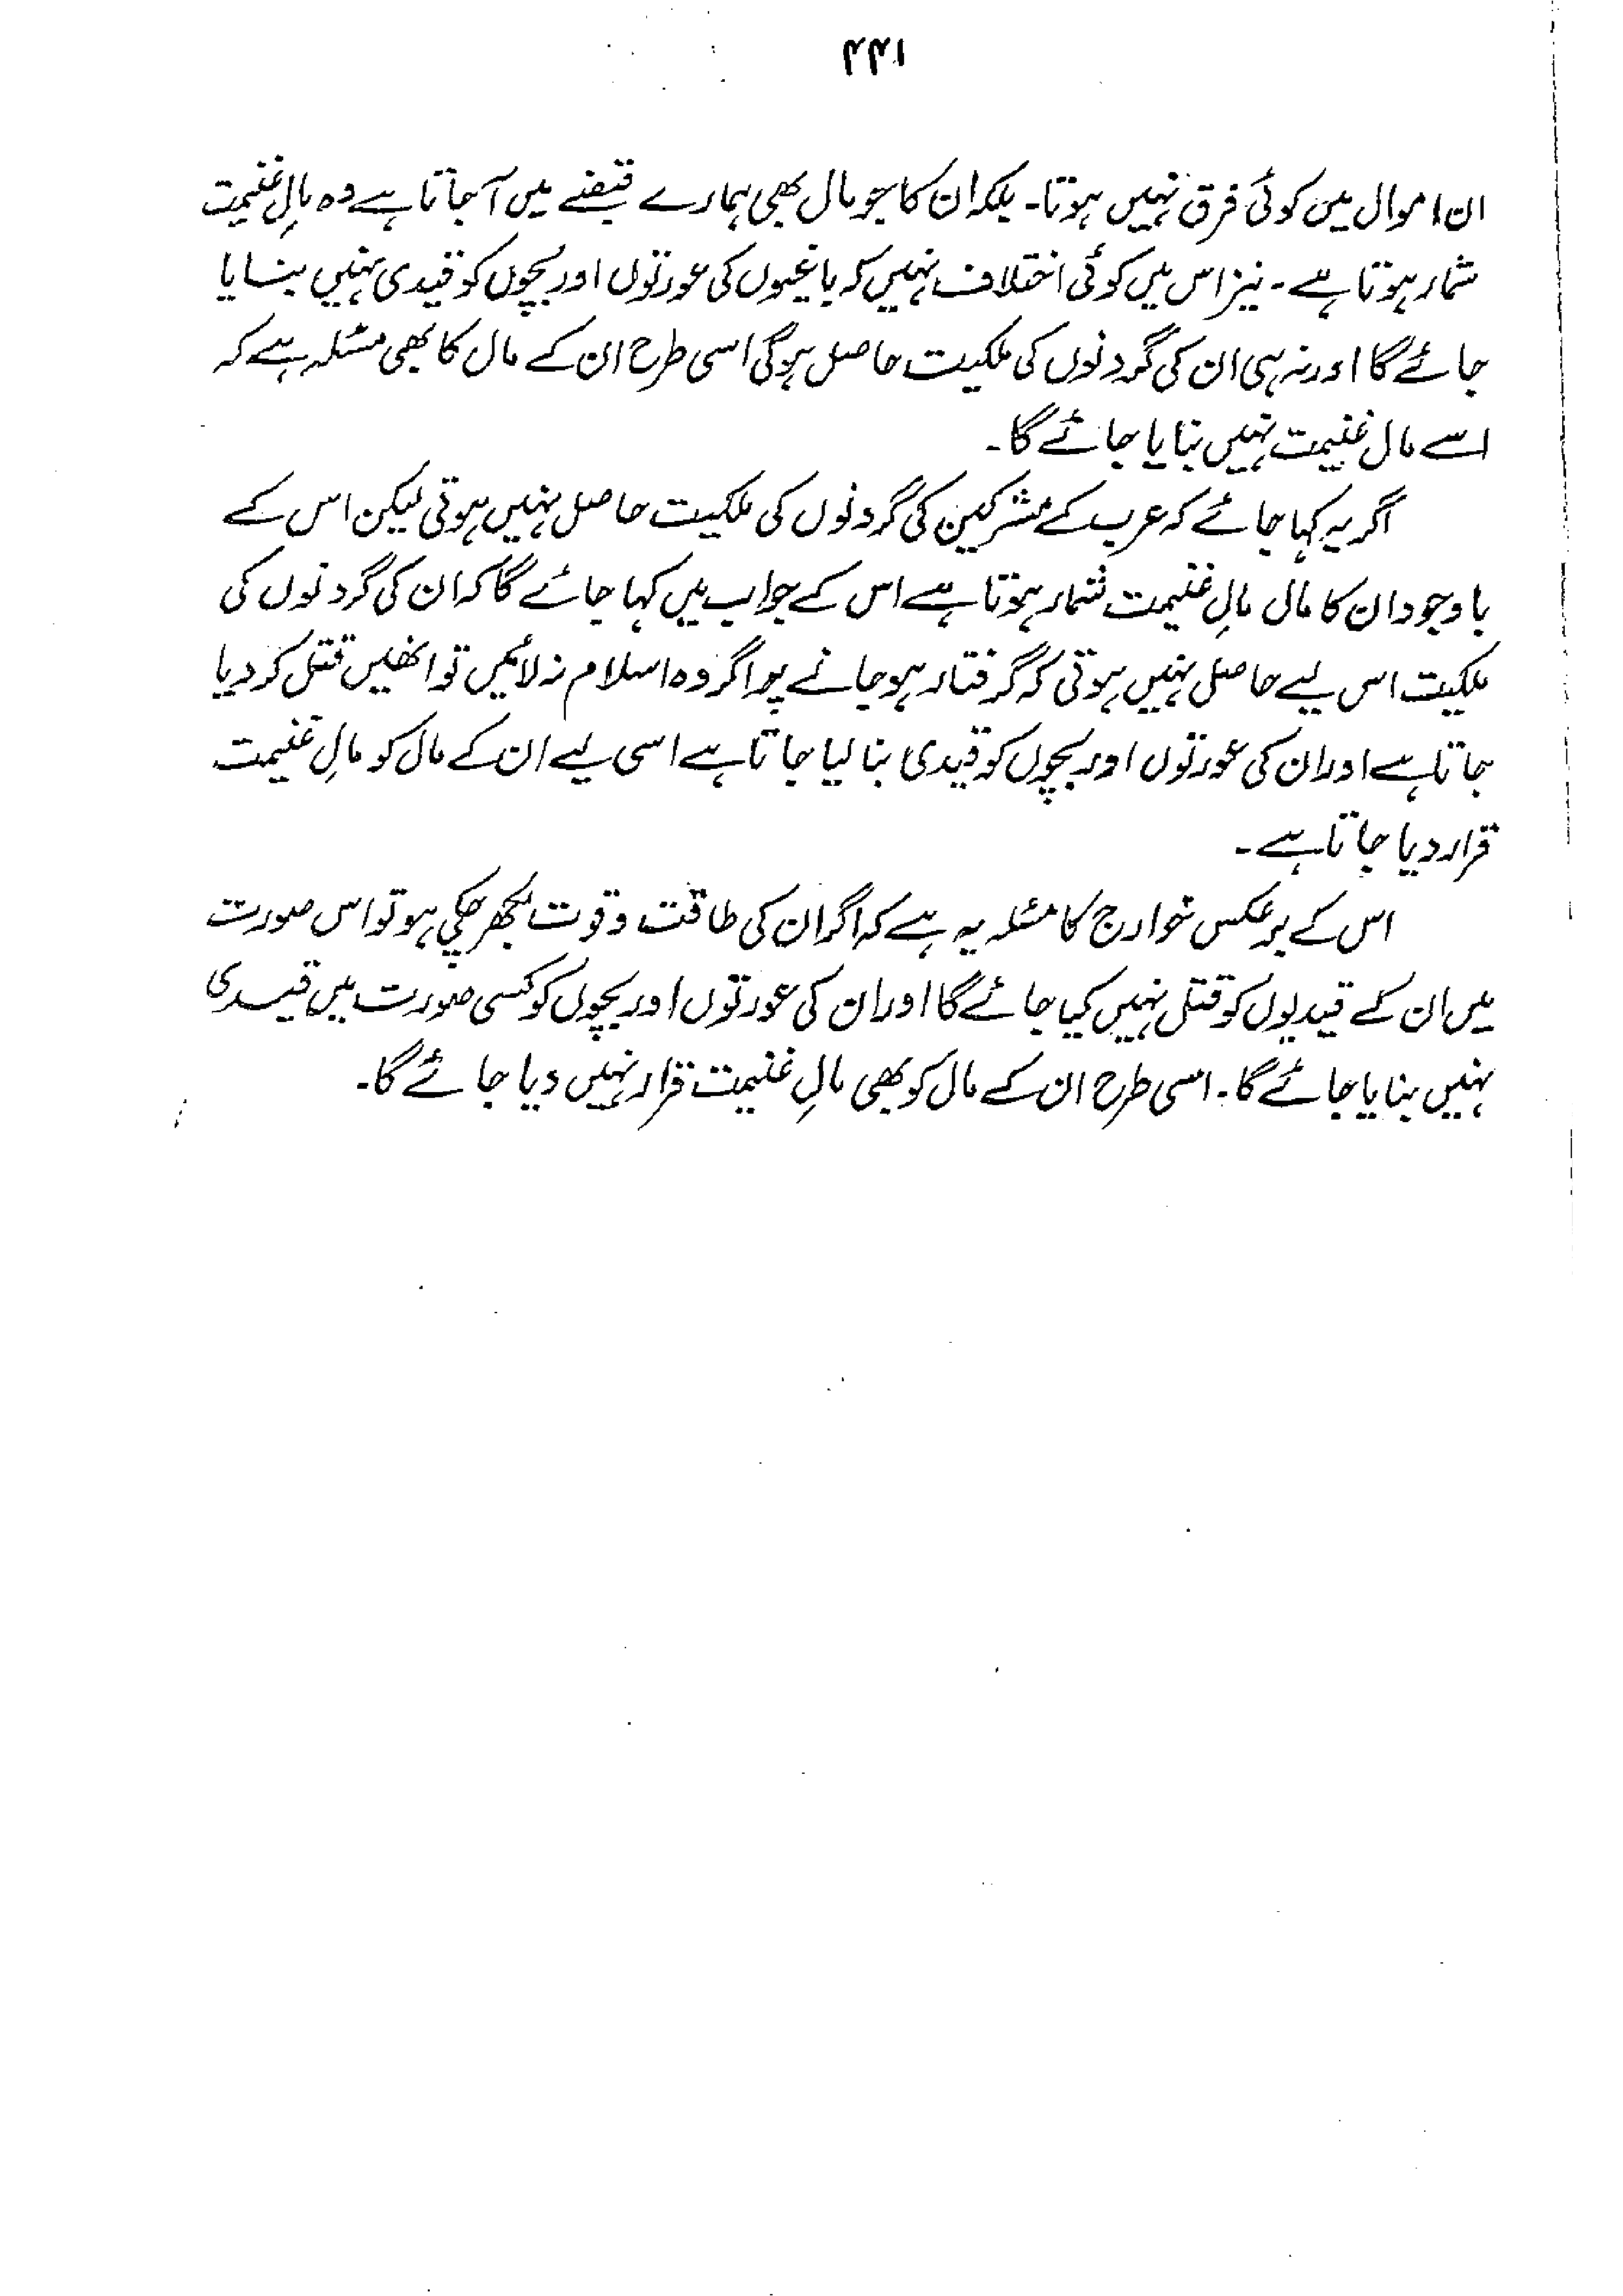 ۴۴۱
ان اموال میں کوئی فرق نہیں ہوتا۔ بلکہ ان کا جو مال بھی ہمارے قبضے میں آ جاتا ہے وہ مالِ غنیمت
شمار ہوتا ہے۔ نیز اس میں کوئی اختلاف نہیں کہ باغیوں کی عورتوں اور بچوں کو قیدی نہیں بنایا
جائے گا اور نہ ہی ان کی گردنوں کی ملکیت حاصل ہوگی اسی طرح ان کے مال کا بھی مسئلہ ہے کہ
اسے مال غنیمت نہیں بنایا جائے گا۔
اگر یہ کہا جائے کہ عرب کے مشرکین کی گردنوں کی ملکیت حاصل نہیں ہوتی لیکن اس کے
باوجود ان کا مال مالِ غنیمت شمار ہوتا ہے اس کے جواب میں کہا جائے گا کہ ان کی گردنوں کی
ملکیت اس لیے حاصل نہیں ہوتی کہ گرفتار ہو جانے پر اگر وہ اسلام نہ لائیں تو انھیں قتل کر دیا
جاتا ہے اور ان کی عورتوں اور بچوں کو قیدی بنا لیا جاتا ہے اسی لیے ان کے مال کو مالِ غنیمت
قرار دیا جاتا ہے۔
اس کے برعکس خوارج کا مسئلہ یہ ہے کہ اگر ان کی طاقت وقوت بکھر چکی ہو تو اس صورت
میں ان کے قیدیوں کو قتل نہیں کیا جائے گا اور ان کی عورتوں اور بچوں کو کسی صورت میں قیدی
نہیں بنایا جائے گا۔ اسی طرح ان کے مال کو بھی مالِ غنیمت قرار نہیں دیا جائے گا۔